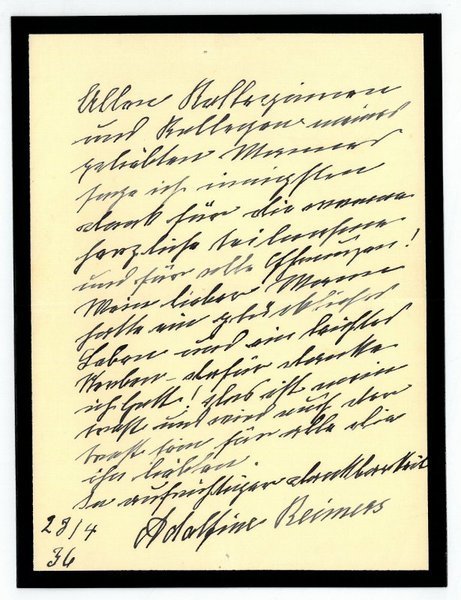 Allen Kolleginnen
und Kollegen meines
geliebten Mannes
sage ich innigsten
Dank für die warme
herzliche Teilnahme
und für alle Ehrungen!
Mein lieber Mann
hatte ein glückliches
Leben und ein leichtes
Sterben dafür danke
ich Gott! Das ist mein
Trost und wird auch der
Trost sein für alle die
ihn lieben.
In aufrichtiger Dankbarkeit
Adolfine Reimers
28/4
36